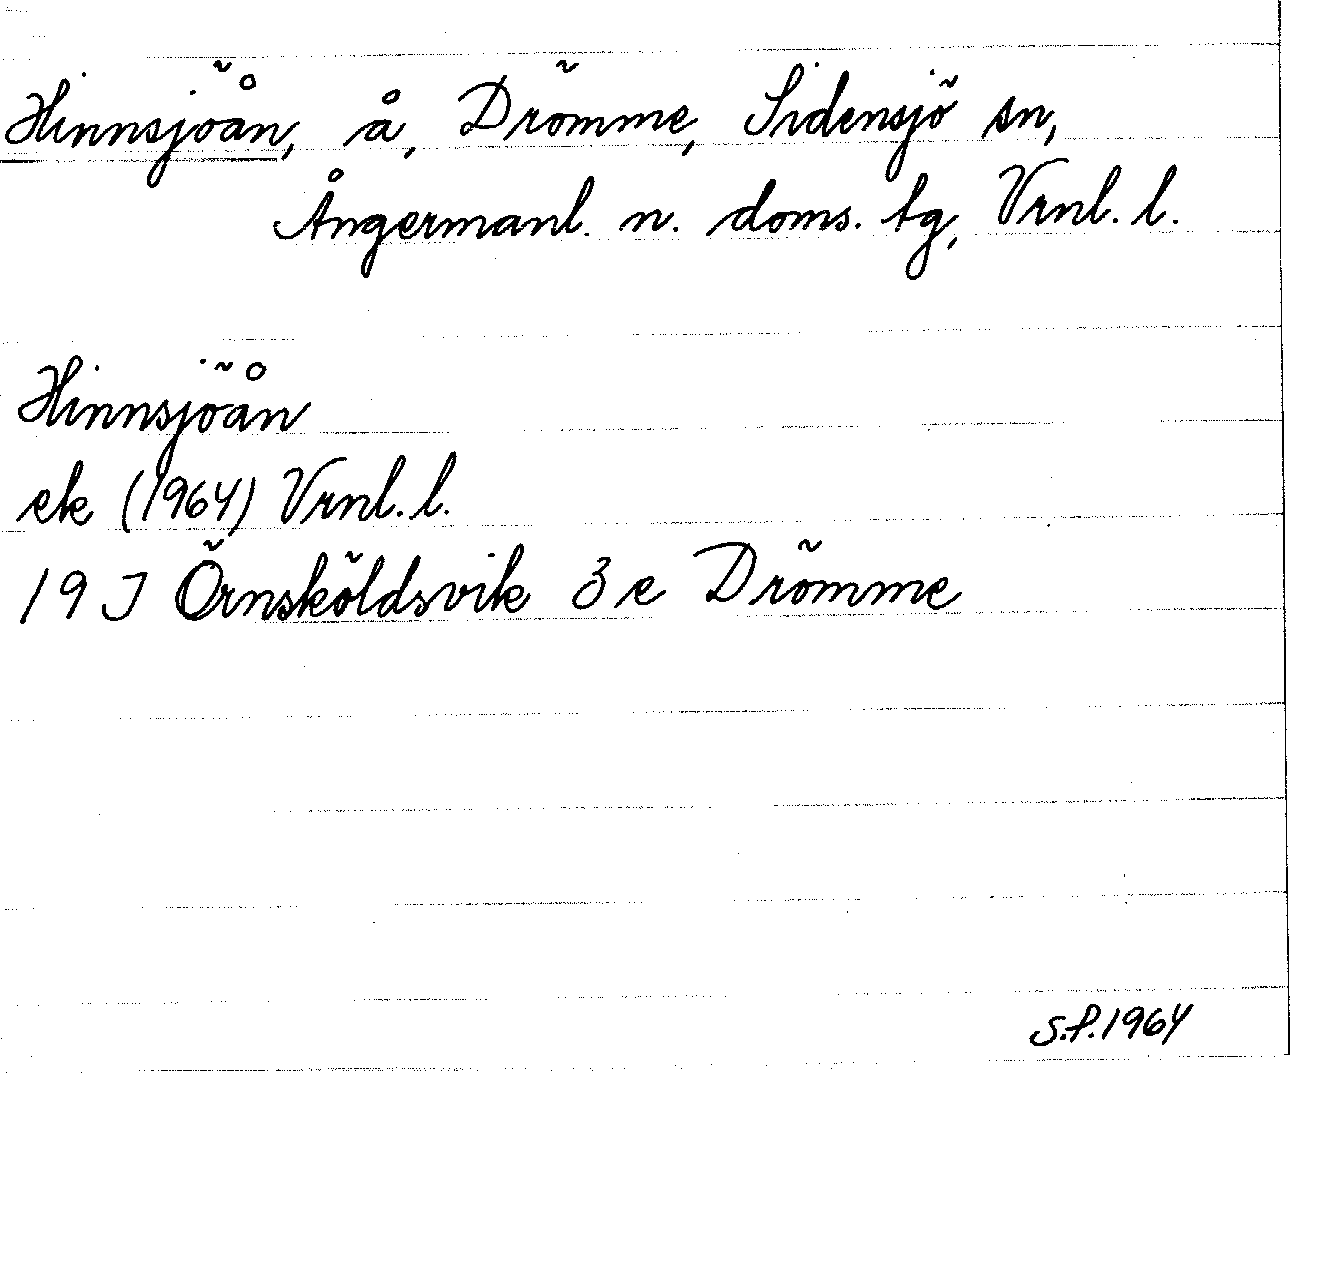 Hinnsjöån, å, Drömme, Sidensjö sn,
Ångermanl. n. doms. tg, Vrnl. l.
Hinnsjöån
ek (1964) Vrnl. l.
19 J Örnsköldsvik 3 e Drömme
S.P. 1964